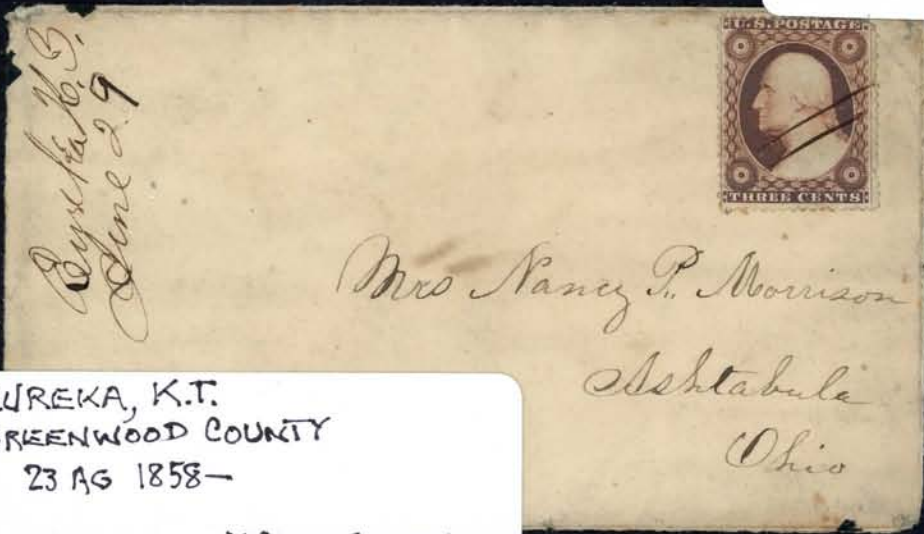 June 29
U.S. POSTAGE
THREE CENTS
Mrs Nancy P. Morrison
Ashtabula
Ohio
UREKA, K.T.
REENWOOD COUNTY
23 AG 1858—